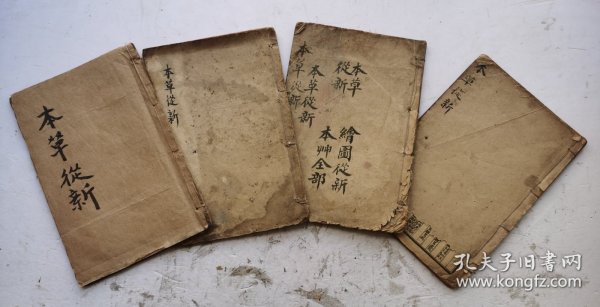 本草從新
本草從新
本草從新
本草從新
本草
從新
繪圖從新
本艸全部
本草從新
孔夫子旧书网
www.kongfz.com